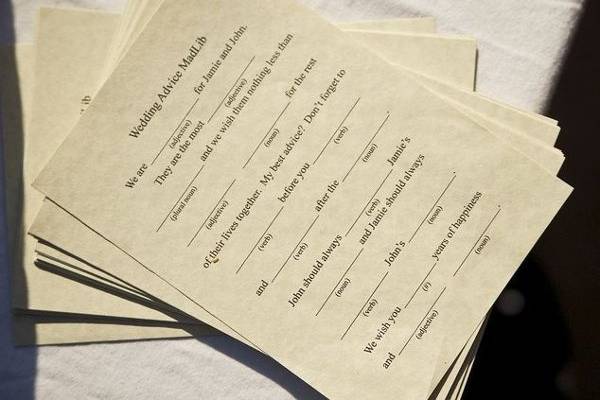 Wedding Advice MadLib
We are ________ for Jamie and John.
(adjective)
They are the most ________
(adjective)
________ and we wish them nothing less than
(plural noun)
________ ________ for the rest
(adjective) (noun)
of their lives together. My best advice? Don't forget to
________ before you ________
(verb) (verb)
and ________ after the ________.
(verb) (noun)
John should always ________ Jamie's
(verb)
________ and Jamie should always
(noun)
________ John's ________.
(verb) (noun)
We wish you ____ years of happiness
(#)
and ________ ________.
(adjective) (noun)